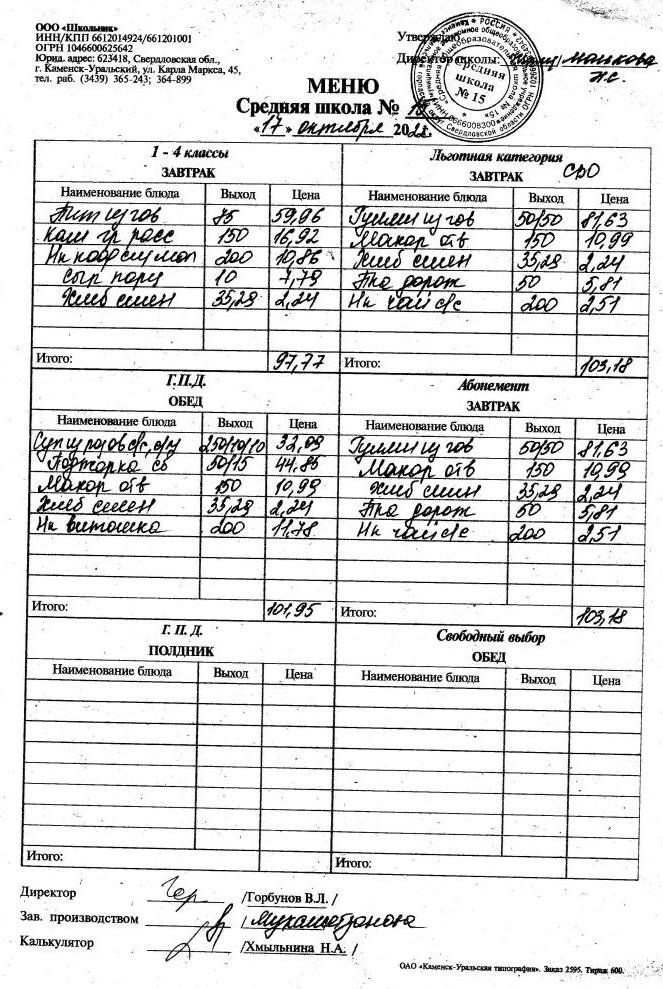 ООО «Школьник»
ИНН/КПП 6612014924/661201001
ОГРН 1046600625642
Юрид. адрес: 623418, Свердловская обл.,
г. Каменск-Уральский, ул. Карла Маркса, 45,
тел. раб. (3439) 365-243; 364-899
Утверждаю
Директор школы:
Средняя
школа
№ 15
МЕНЮ
Средняя школа № 15
«17» октября 202
1 - 4 классы
ЗАВТРАК
Наименование блюда Выход Цена
85 59,96
150 16,92
200 10,86
Сыр порц 10 7,79
Хлеб 35,28 2,24
Итого: 97,77
Льготная категория
ЗАВТРАК
Наименование блюда Выход Цена
Гуляш 50/50 81,63
Макар отв 150 10,99
Хлеб 35,28 2,24
50 5,81
Нк чай с/с 200 2,51
Итого: 103,18
Г.П.Д.
ОБЕД
Наименование блюда Выход Цена
Суп 250/10/10 32,09
Поджарка св 50/15 44,85
Макар отв 150 10,99
Хлеб 35,28 2,24
Нк витошка 200 11,78
Итого: 101,95
Абонемент
ЗАВТРАК
Наименование блюда Выход Цена
Гуляш 50/50 81,63
Макар отв 150 10,99
Хлеб 35,28 2,24
50 5,81
Нк чай с/с 200 2,51
Итого: 103,18
Г. П. Д.
ПОЛДНИК
Наименование блюда Выход Цена
Итого:
Свободный выбор
ОБЕД
Наименование блюда Выход Цена
Итого:
Директор /Горбунов В.Л. /
Зав. производством /
Калькулятор /Хмыльнина Н.А. /
ОАО «Каменск-Уральская типография». Заказ 2595. Тираж 600.